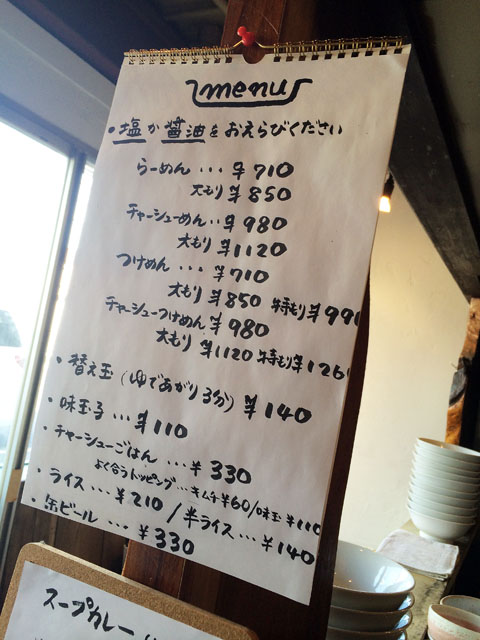 menu
・塩か醤油をおえらびください
らーめん…¥710
大もり ¥850
チャーシューめん‥¥980
大もり ¥1120
つけめん…¥710
大もり ¥850 特もり¥99
チャーシューつけめん ¥980
大もり ¥1120 特もり¥126
・替え玉(ゆであがり3分) ¥140
・味玉子…¥110
・チャーシューごはん …¥330
よく合うトッピング…キムチ¥60/味玉¥110
・ライス…¥210/半ライス…¥140
・缶ビール…¥330
スープカレー